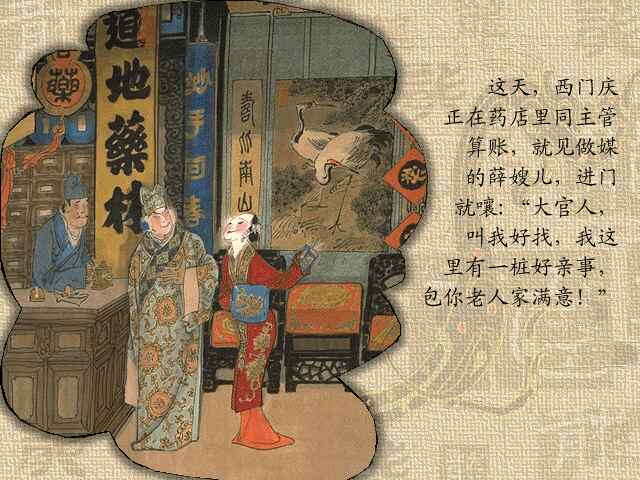 这天，西门庆
正在药店里同主管
算账，就见做媒
的薛嫂儿，进门
就嚷：“大官人，
叫我好找，我这
里有一桩好亲事，
包你老人家满意！”
藥
道地藥材
妙手回春
壽比南山